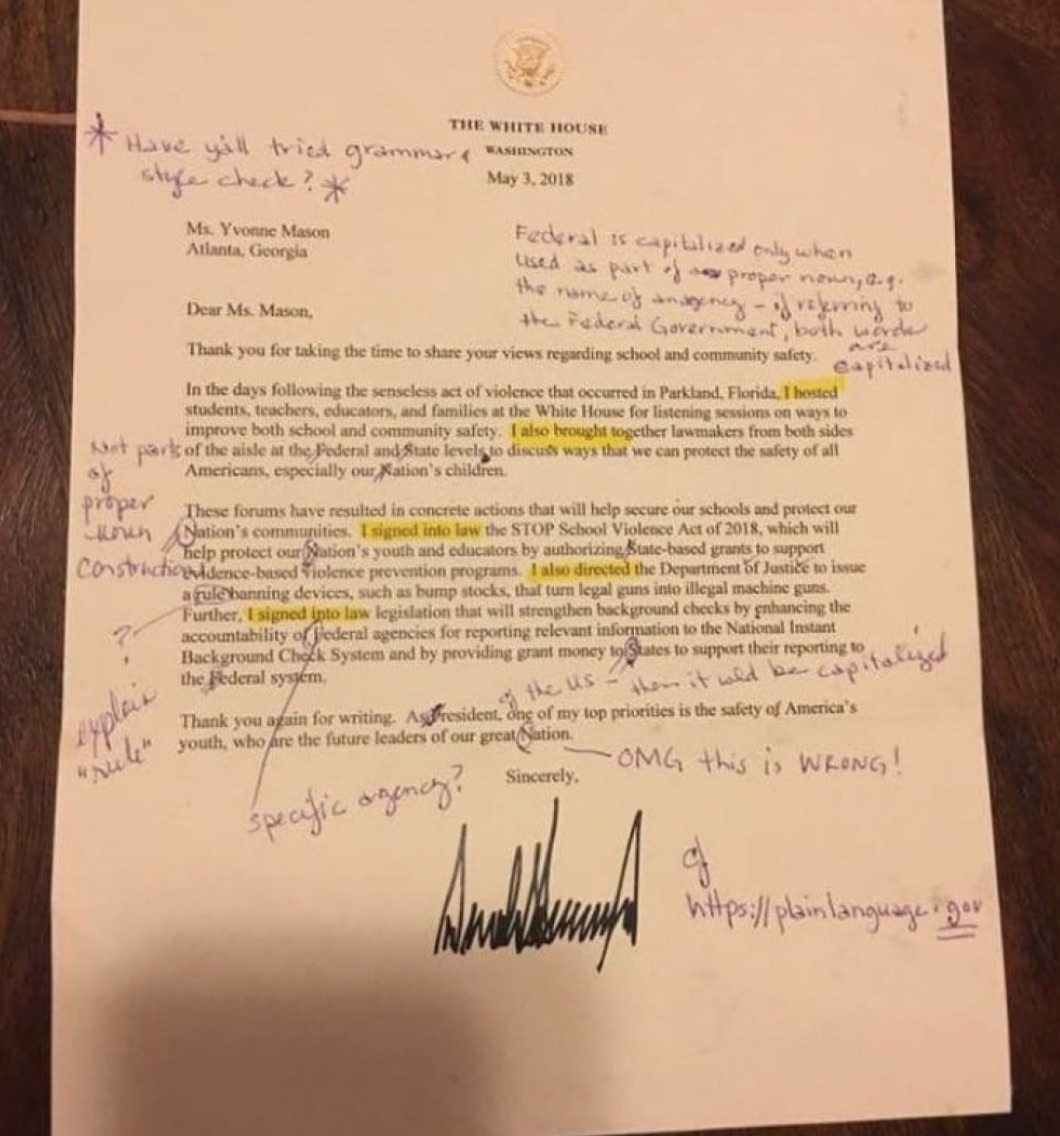 THE WHITE HOUSE
WASHINGTON
May 3, 2018
* Have y'all tried grammar &
style check? *
Ms. Yvonne Mason
Atlanta, Georgia
Federal is capitalized only when
used as part of proper noun, e.g.
the name of an agency - if referring to
the Federal Government, both words
are
capitalized
Dear Ms. Mason,
Thank you for taking the time to share your views regarding school and community safety.
In the days following the senseless act of violence that occurred in Parkland, Florida, I hosted
students, teachers, educators, and families at the White House for listening sessions on ways to
improve both school and community safety. I also brought together lawmakers from both sides
of the aisle at the Federal and State levels to discuss ways that we can protect the safety of all
Americans, especially our Nation's children.
Not part
of
proper
noun
construction
These forums have resulted in concrete actions that will help secure our schools and protect our
Nation's communities. I signed into law the STOP School Violence Act of 2018, which will
help protect our Nation's youth and educators by authorizing State-based grants to support
evidence-based violence prevention programs. I also directed the Department of Justice to issue
a rule banning devices, such as bump stocks, that turn legal guns into illegal machine guns.
Further, I signed into law legislation that will strengthen background checks by enhancing the
accountability of Federal agencies for reporting relevant information to the National Instant
Background Check System and by providing grant money to States to support their reporting to
the Federal system.
?
explain
"rule"
of the US - then it wld be capitalized
Thank you again for writing. As President, one of my top priorities is the safety of America's
youth, who are the future leaders of our great Nation.
OMG this is WRONG!
Sincerely,
specific agency?
cf
https://plainlanguage.gov